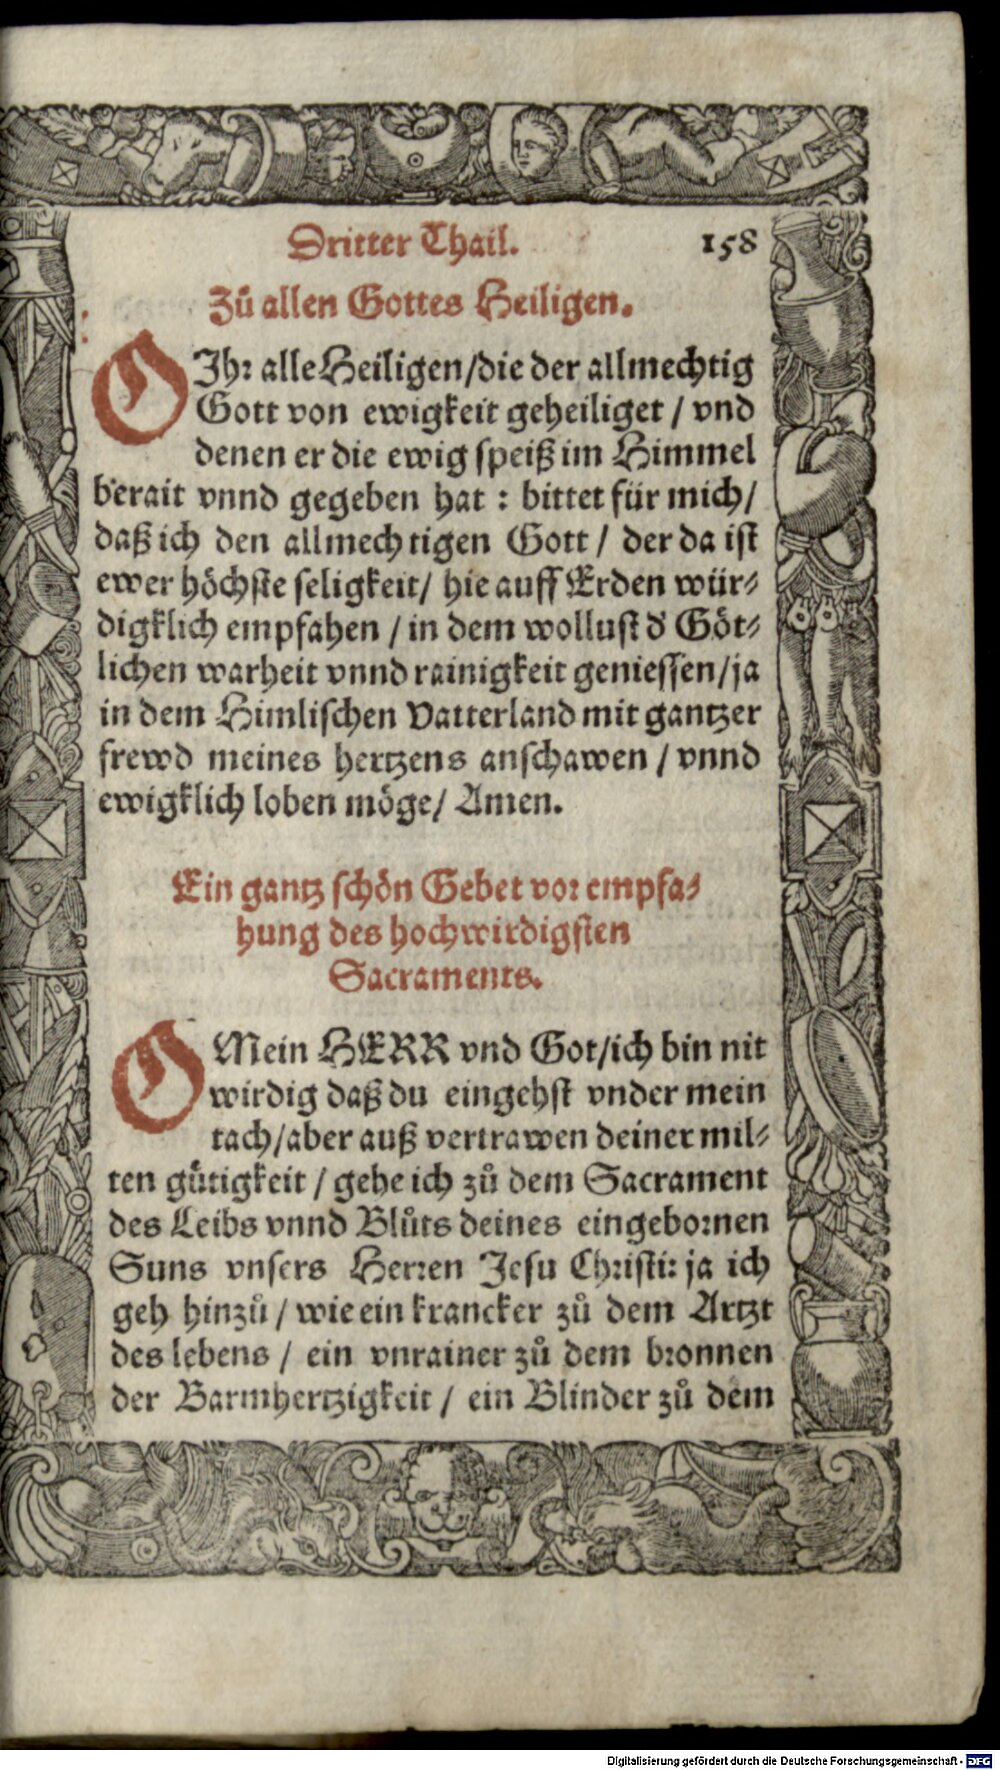 Dritter Thail. 158
Zů allen Gottes Heiligen.
O Ihr alle Heiligen/die der allmechtig
Gott von ewigkeit geheiliget / vnd
denen er die ewig speiß im Himmel
berait vnnd gegeben hat : bittet für mich/
daß ich den allmechtigen Gott / der da ist
ewer höchste seligkeit/ hie auff Erden wür-
digklich empfahen / in dem wollust d' Göt-
lichen warheit vnnd rainigkeit geniessen/ja
in dem Himlischen Vatterland mit gantzer
frewd meines hertzens anschawen / vnnd
ewigklich loben möge/ Amen.
Ein gantz schön Gebet vor empfa-
hung des hochwirdigsten
Sacraments.
O Mein HERR vnd Got/ich bin nit
wirdig daß du eingehst vnder mein
tach/aber auß vertrawen deiner mil-
ten gütigkeit / gehe ich zů dem Sacrament
des Leibs vnnd Blůts deines eingebornen
Suns vnsers Herren Jesu Christi: ja ich
geh hinzů / wie ein krancker zů dem Artzt
des lebens / ein vnrainer zů dem bronnen
der Barmhertzigkeit / ein Blinder zů dem
Digitalisierung gefördert durch die Deutsche Forschungsgemeinschaft - DFG